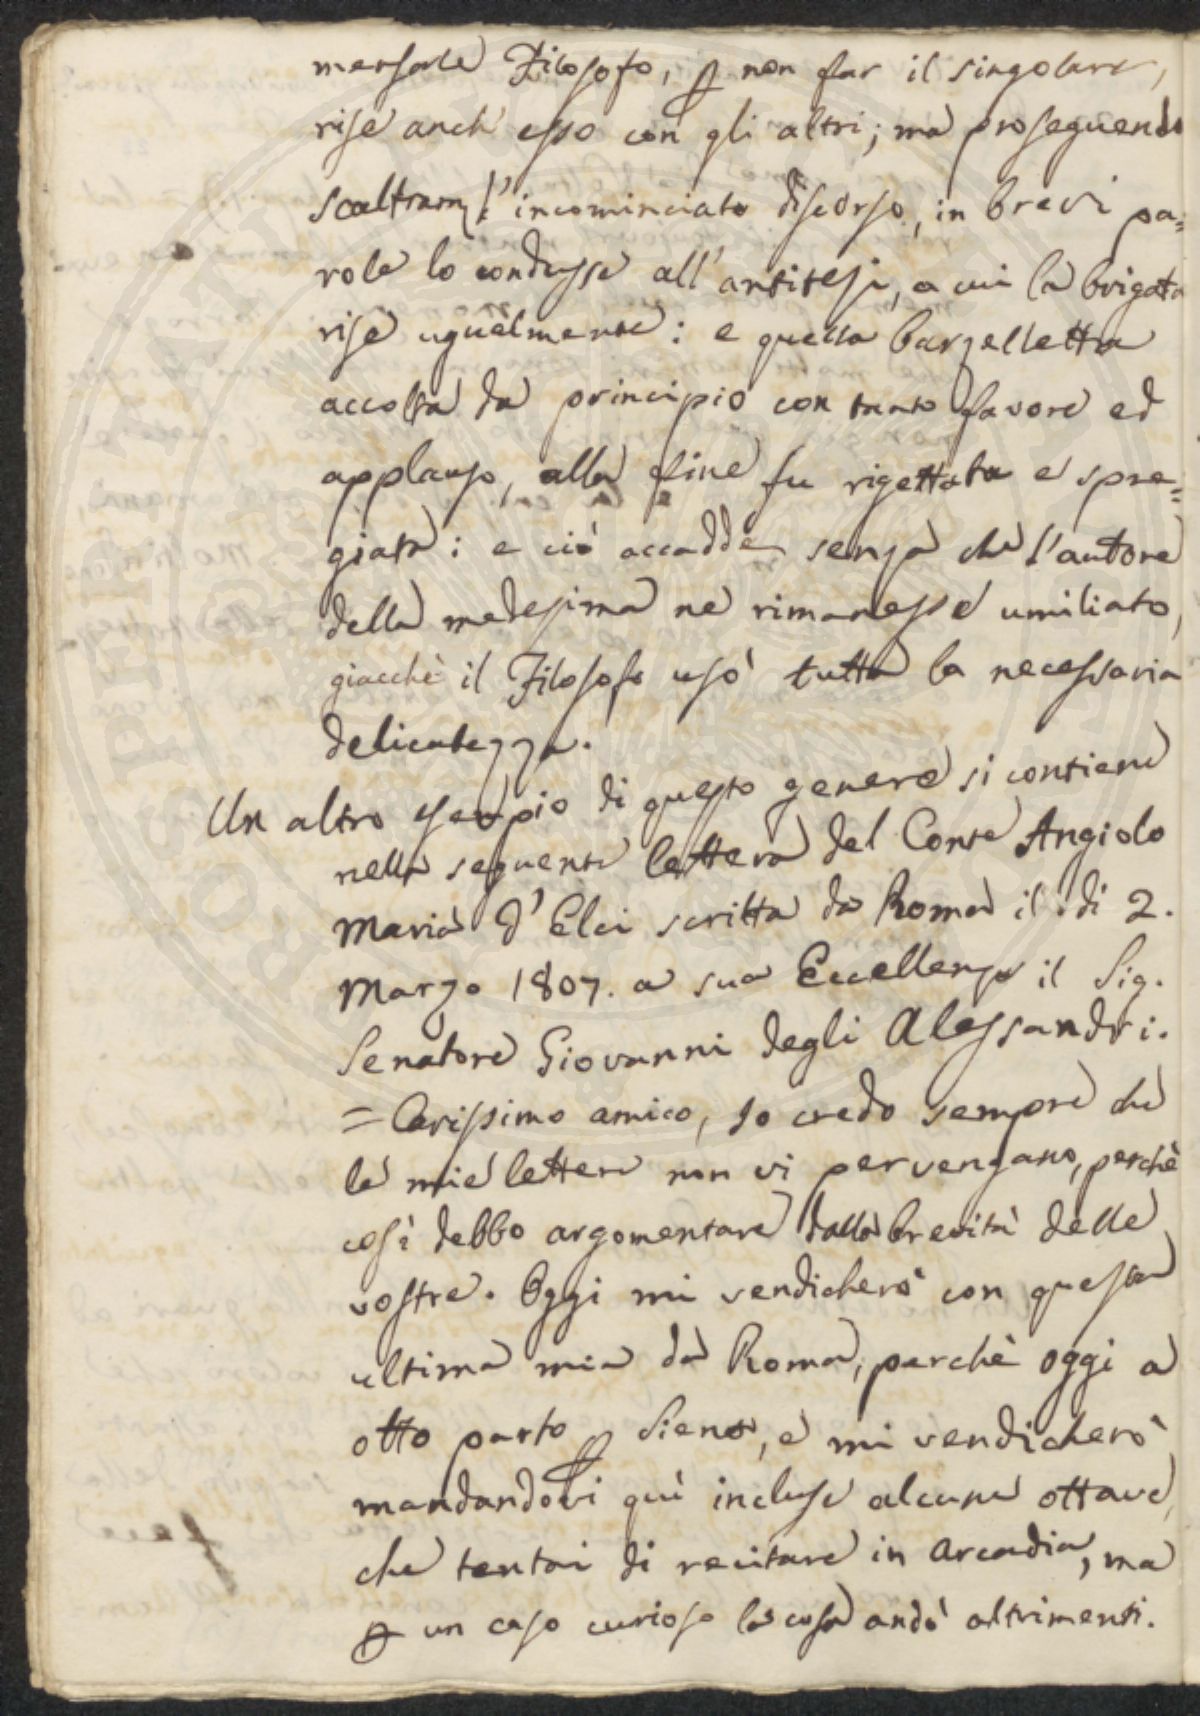 mensale Filosofo, ꝑ non far il singolare,
rise anch' esso con gli altri; ma proseguendo
scaltram. l'incominciato discorso, in brevi pa=
role lo condusse all'antitesi, a cui la brigata
rise ugualmente: e quella barzelletta
accolta da principio con tanto favore ed
applauso, alla fine fu rigettata e spre=
giata: e ciò accadde senza che l'autore
della medesima ne rimanesse umiliato,
giacchè il Filosofo usò tutta la necessaria
delicatezza.
Un altro esempio di questo genere si contiene
nella seguente lettera del Conte Angiolo
Maria d'Elci scritta da Roma il dì 2.
Marzo 1807. a sua Eccellenza il Sig.
Senatore Giovanni degli Alessandri.
= Carissimo amico, Io credo sempre che
le mie lettere non vi pervengano, perchè
così debbo argomentare dalla brevità delle
vostre. Oggi mi vendicherò con questa
ultima mia da Roma, perchè oggi a
otto parto ꝑ Siena, e mi vendicherò
mandandovi quì incluse alcune ottave,
che tentai di recitare in Arcadia, ma
ꝑ un caso curioso la cosa andò altrimenti.